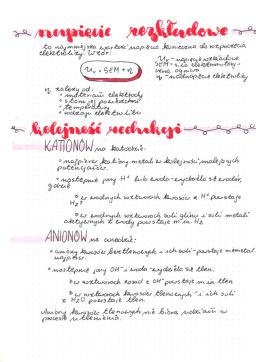 napięcie rozkładowe
to najmniejsza wartość napięcia konieczna do wszczęcia
elektrolizy. Wzór:
U₀ = SEM + η
U₀ - napięcie rozkładowe
SEM -
η - nadnapięcie elektrolizy
η zależy od:
• materiału elektrody
• stanu jej powierzchni
• temperatury
• rodzaju elektrolitu
kolejność redukcji
KATIONÓW na katodzie:
• najpierw kationy metali w kolejności malejących
potencjałów.
• następnie jony H⁺ lub woda - wydziela się wodór,
gdzie
▫ w wodnych roztworach kwasów z H⁺ powstaje
H₂
▫ w wodnych roztworach soli gliny i soli metali
aktywnych z wody powstaje m.in. H₂
ANIONÓW na anodzie:
• aniony kwasów beztlenowych i ich soli - powstaje niemetal.
najpierw.
• następnie jony OH⁻ i woda - wydziela się tlen.
▫ w roztworach zasad z OH⁻ powstaje m.in. tlen
▫ w roztworach kwasów tlenowych i ich soli
z H₂O powstaje tlen.
Aniony kwasów tlenowych nie biorą udziału w
procesie utleniania.